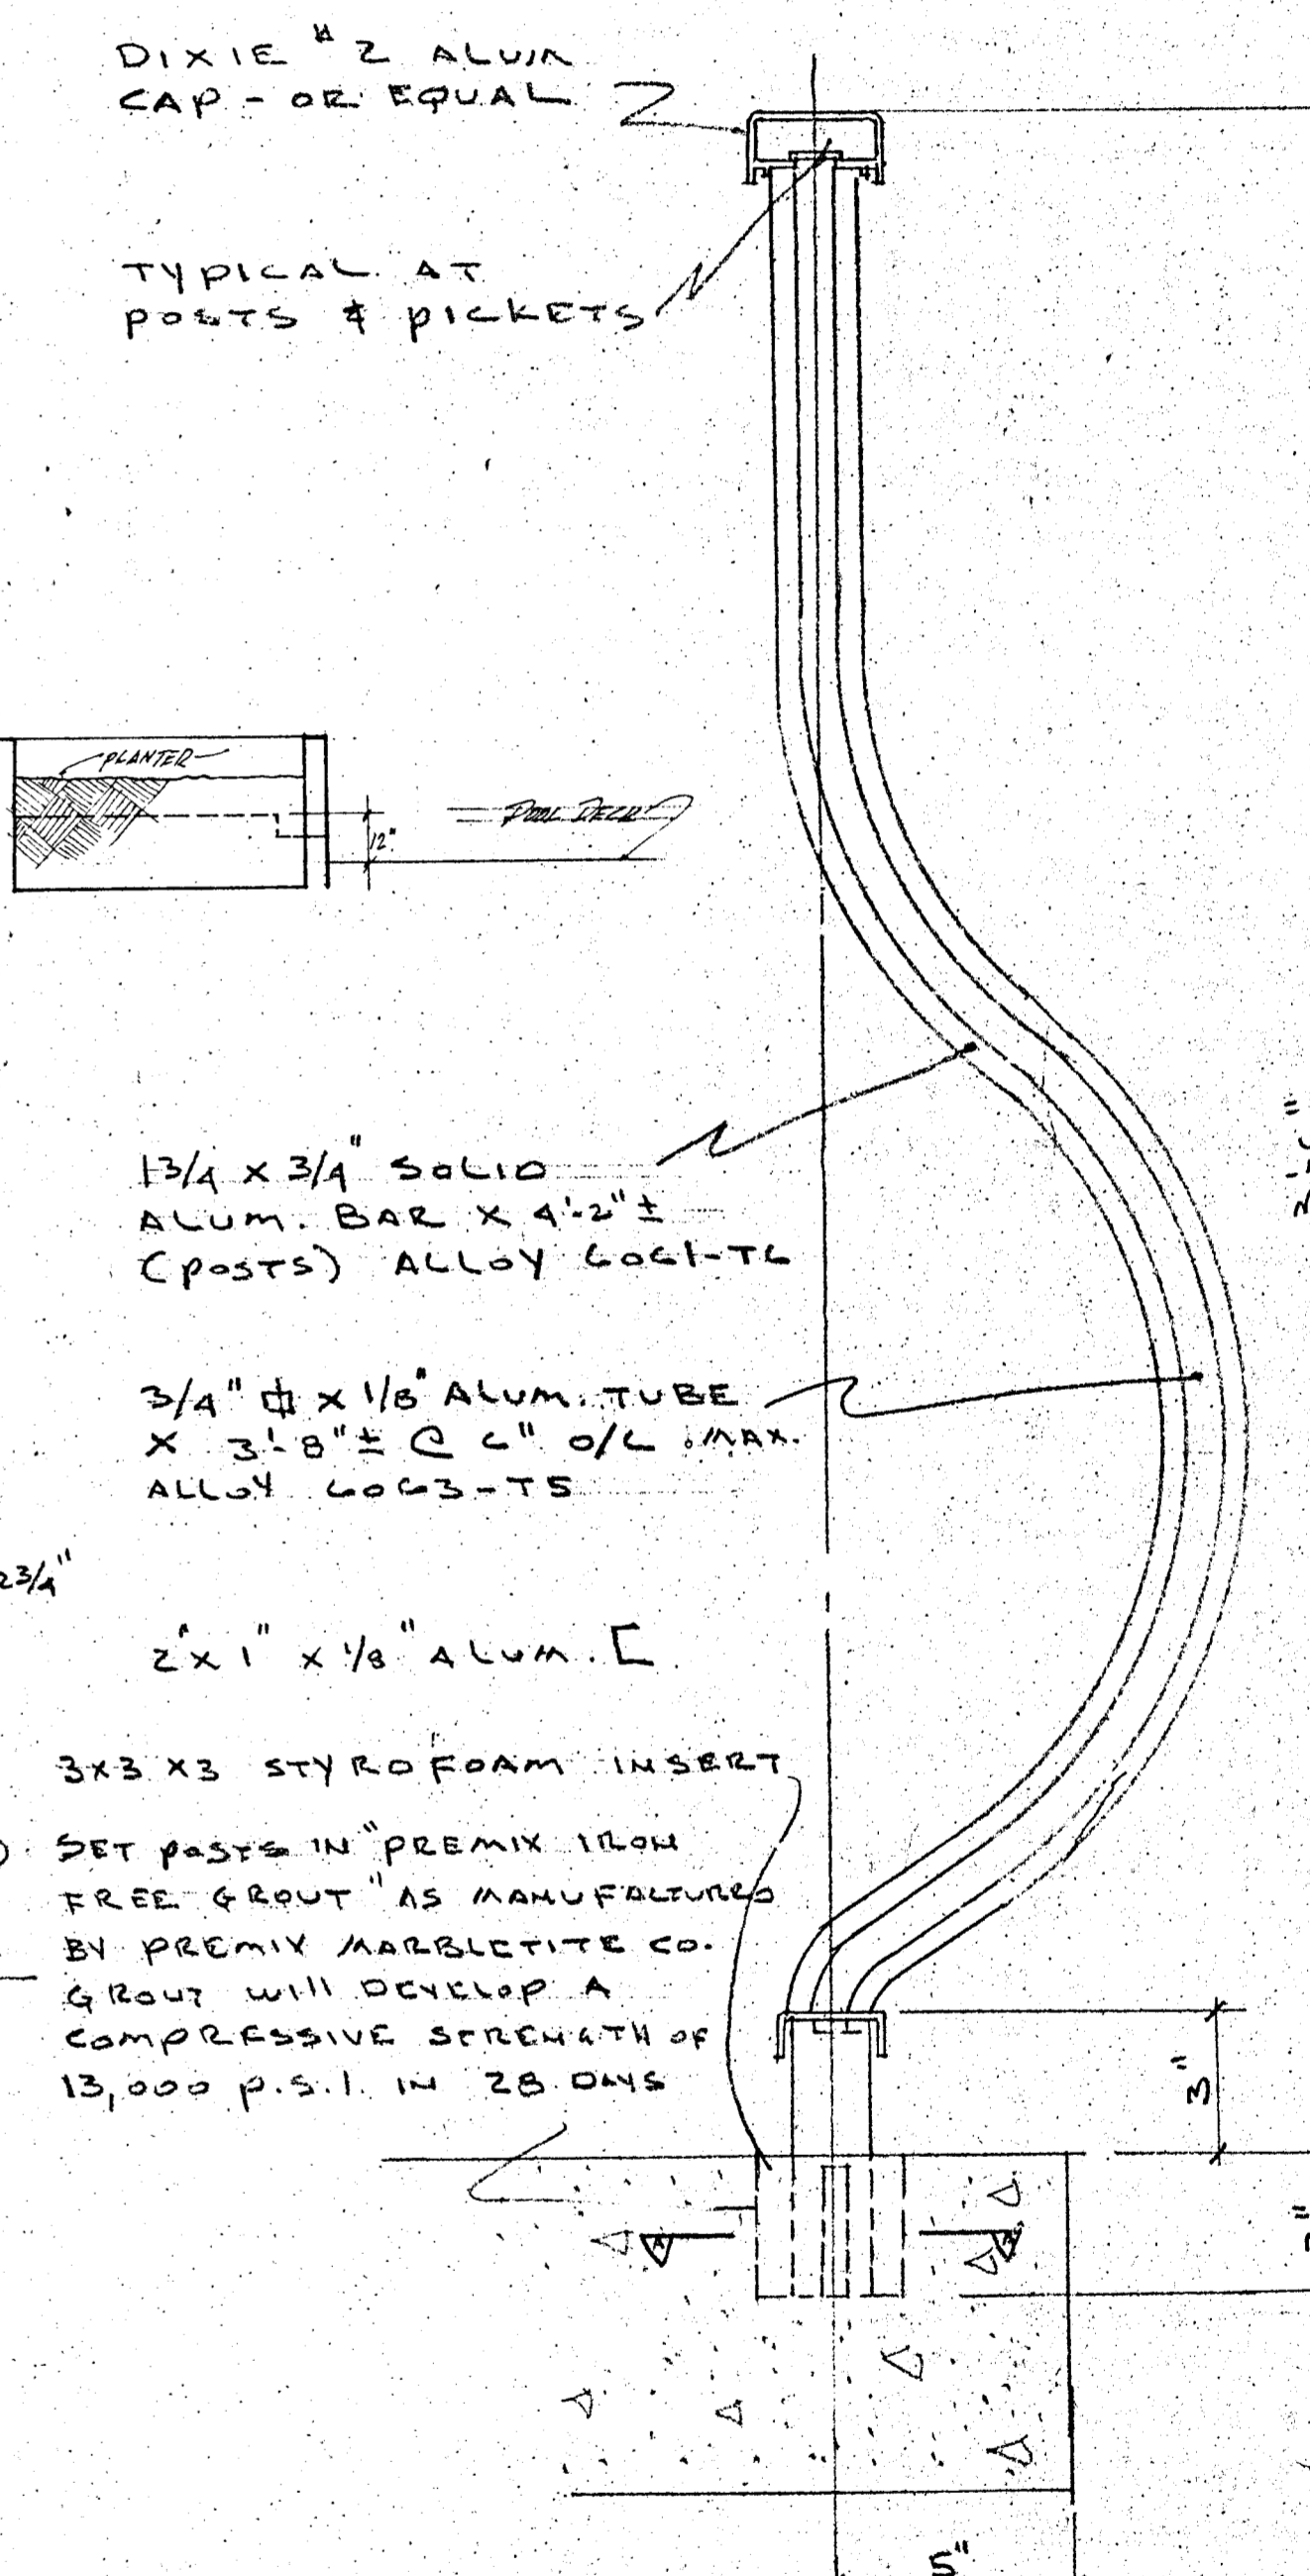 DIXIE #2 ALUM
CAP - OR EQUAL
TYPICAL AT
POSTS & PICKETS
PLANTER
12"
POOL DECK
1 3/4 X 3/4" SOLID
ALUM. BAR X 4'-2" ±
(POSTS) ALLOY 6061-T6
3/4" ⌷ X 1/8" ALUM. TUBE
X 3'-8" ± @ 6" O/C MAX.
ALLOY 6063-T5
2 3/4"
2" X 1" X 1/8" ALUM. [
3X3 X3 STYROFOAM INSERT
SET POSTS IN "PREMIX IRON
FREE GROUT" AS MANUFACTURED
BY PREMIX MARBLETITE CO.
GROUT WILL DEVELOP A
COMPRESSIVE STRENGTH OF
13,000 P.S.I. IN 28 DAYS
3"
5"